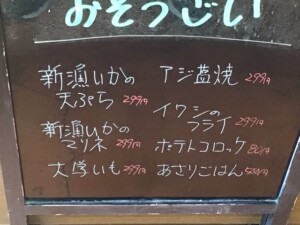 おそうじい
新漁いかの
天ぷら 299円
新漁いかの
マリネ 299円
大学いも 399円
アジ葛焼 299円
イワシの
フライ 299円
ポテトコロッケ 80円
あさりごはん 530円